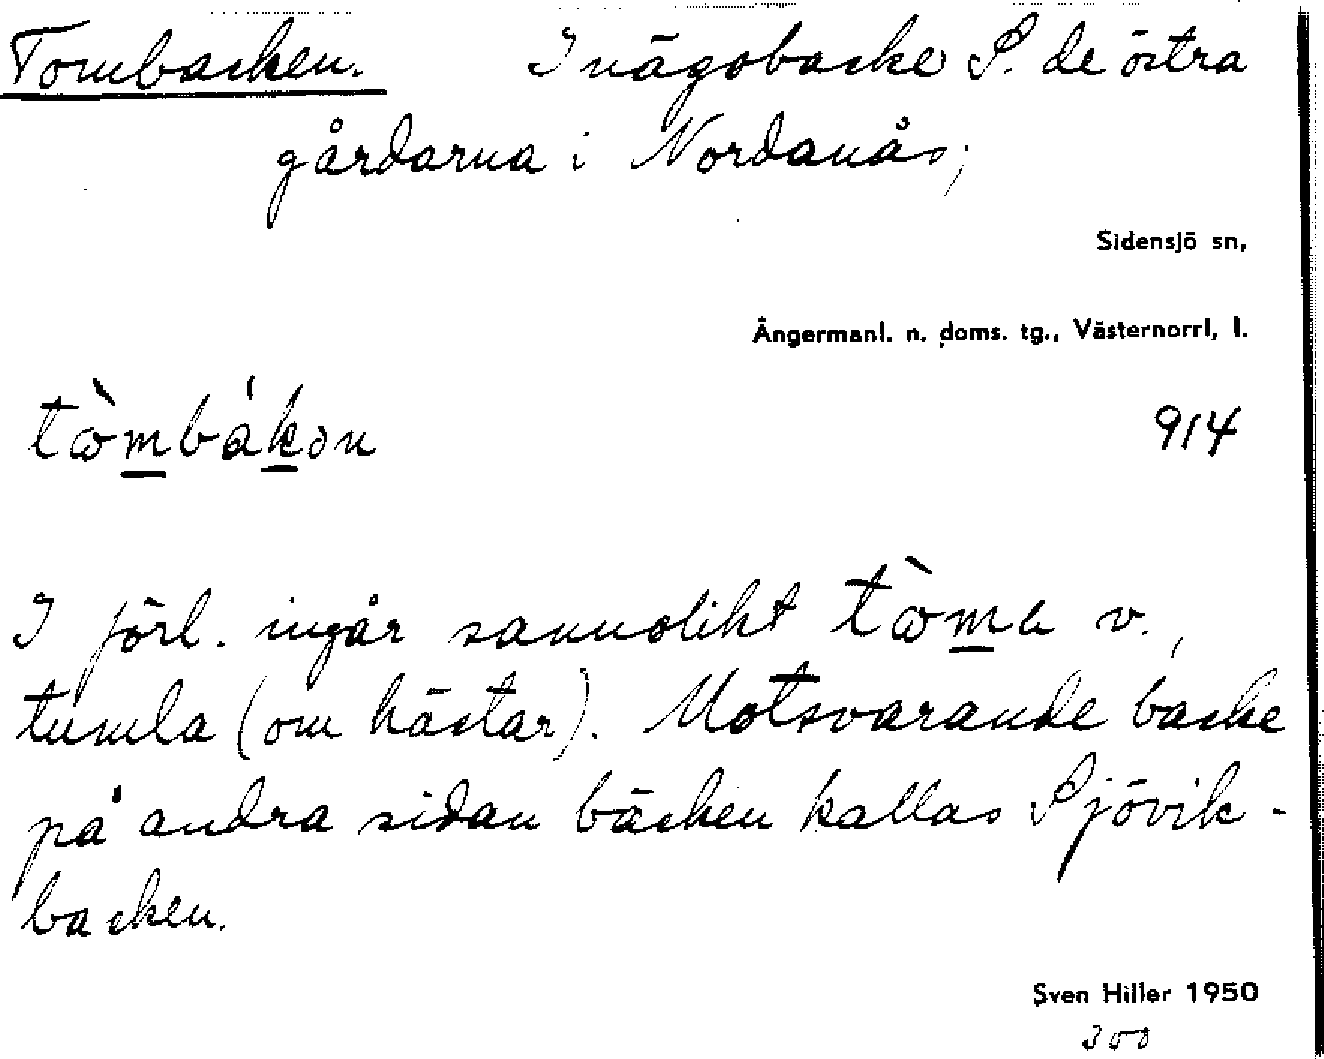 Tombacken. Inägobacke S. de östra
gårdarna i Nordanås;
Sidensjö sn,
Ångermanl. n. doms. tg., Västernorrl, l.
tòmbákən
914
I förl. ingår sannolikt tòma v.,
tumla (om hästar). Motsvarande backe
på andra sidan bäcken kallas Sjövik-
backen.
Sven Hiller 1950
300